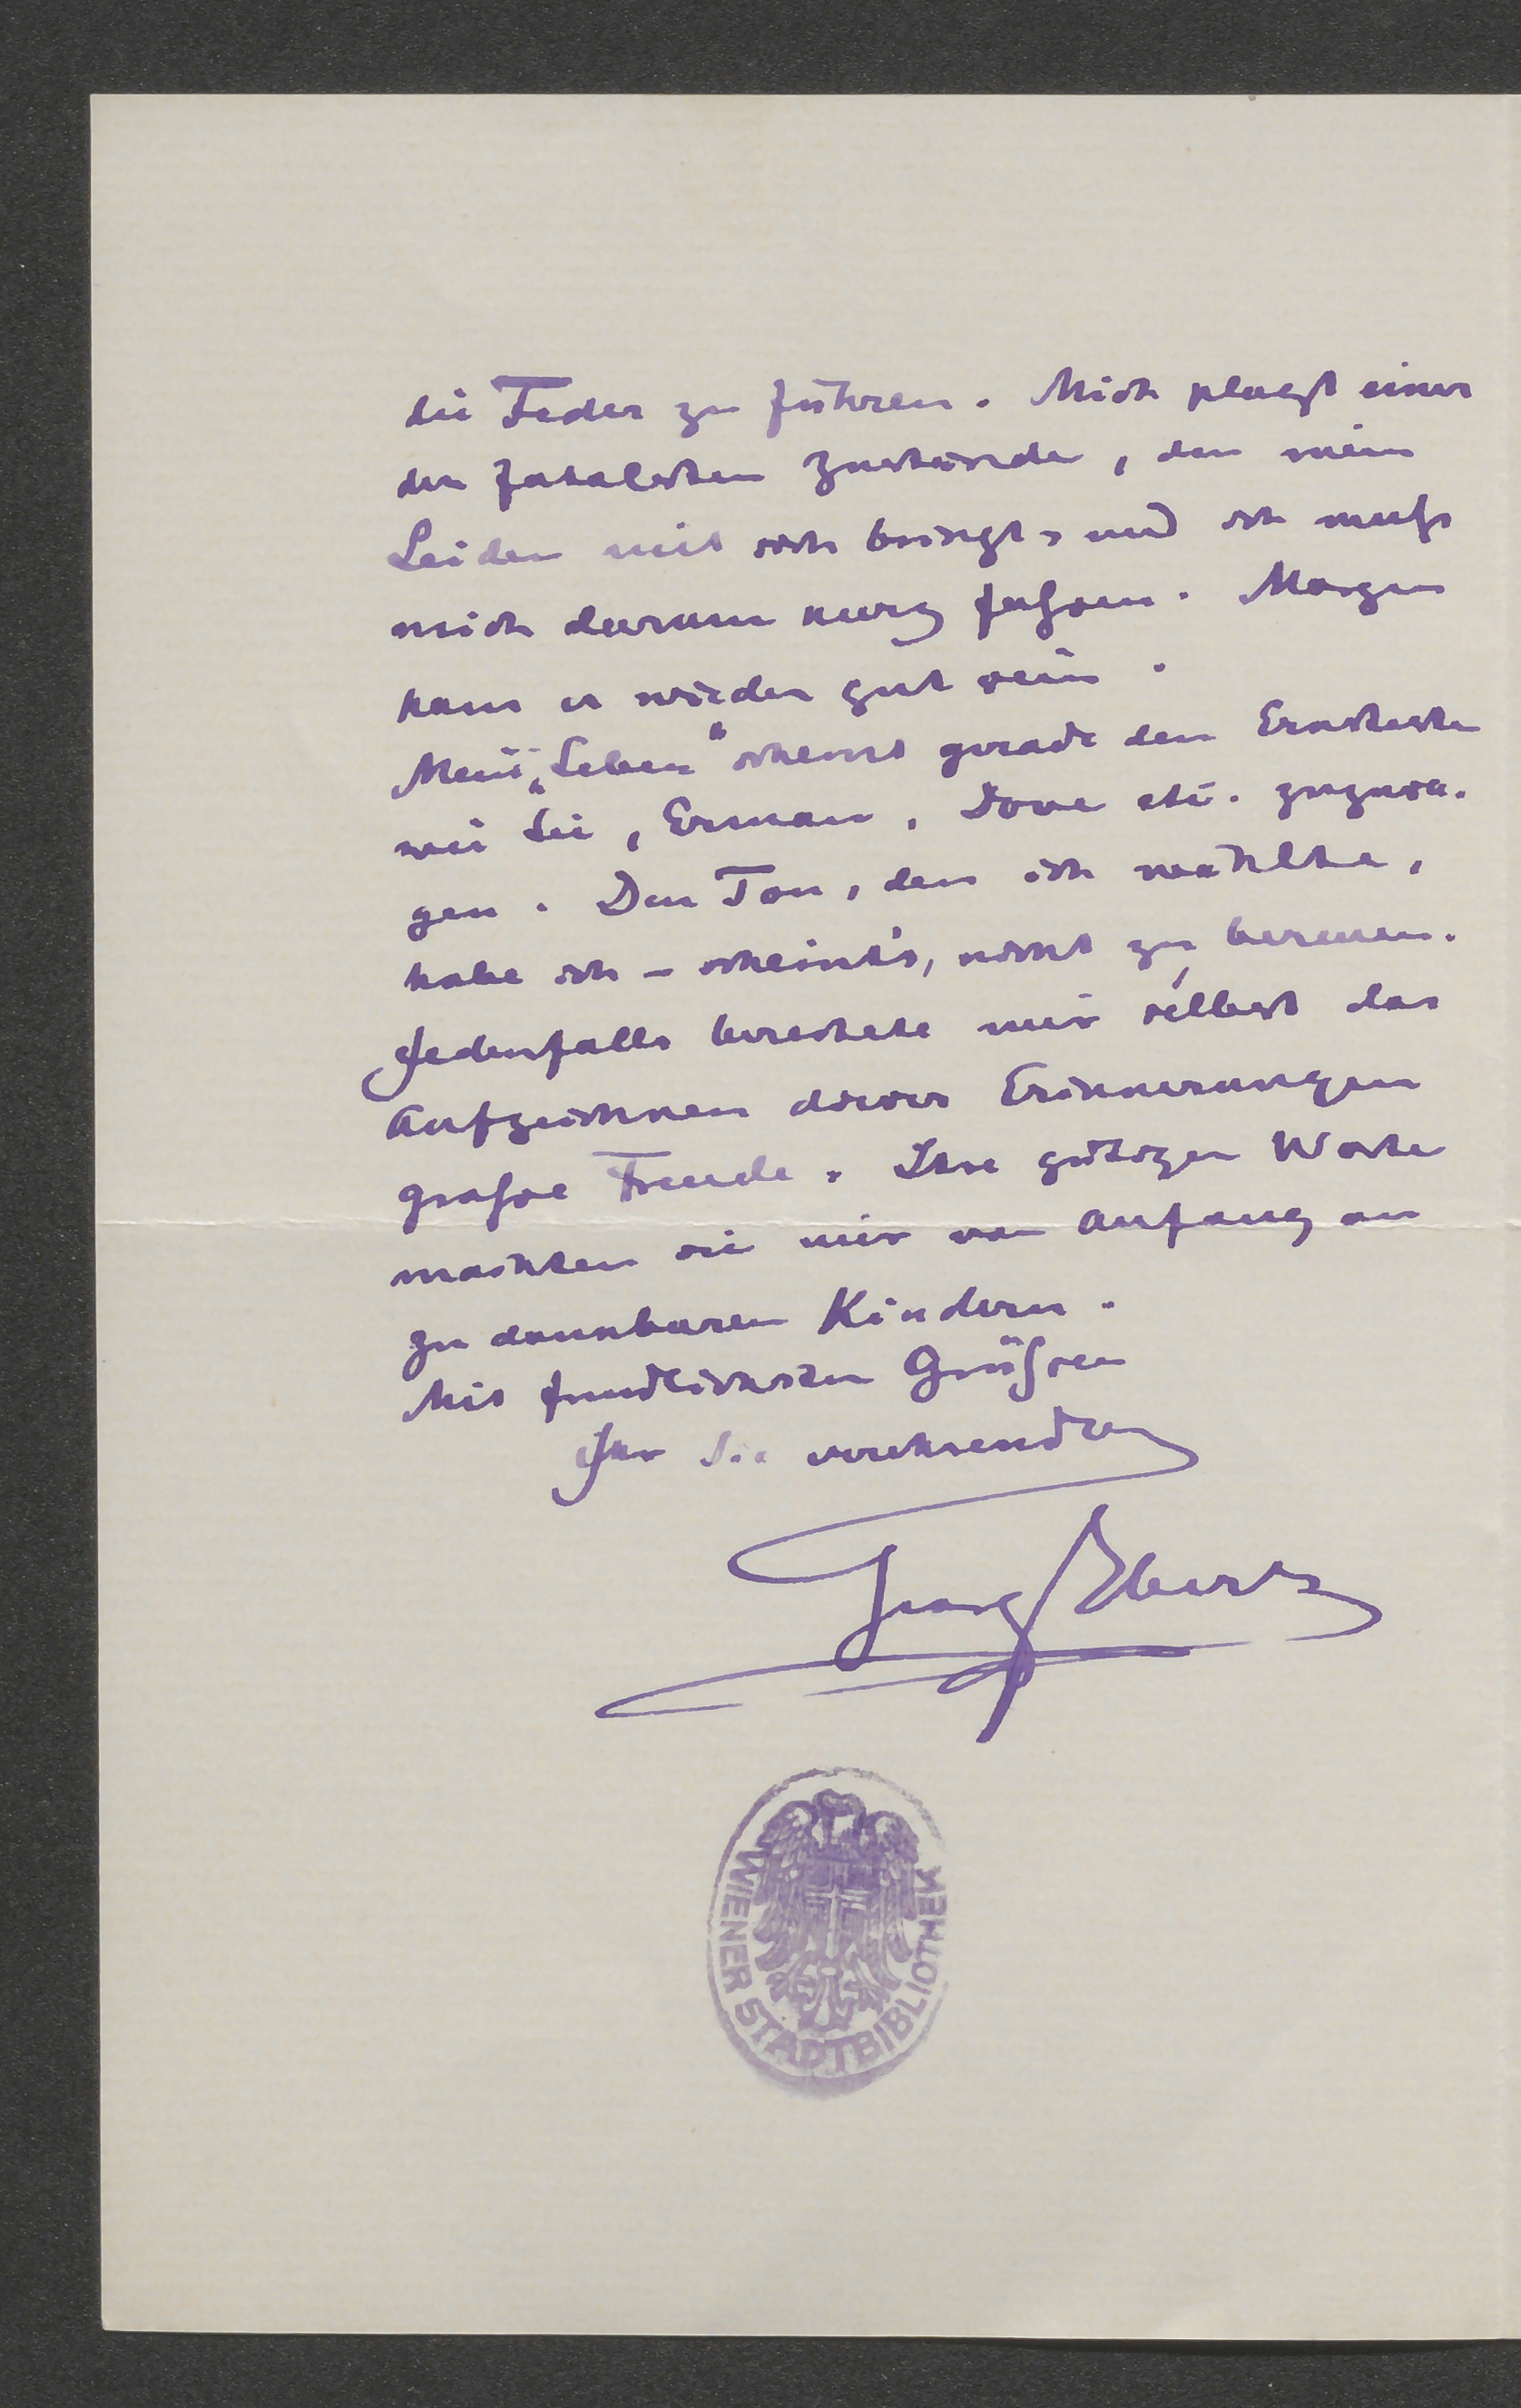 die Feder zu führen. Mich plagt einer
der fatalsten Zustände, den mein
Leiden mit sich bringt, und ich muß
mich darum kurz fassen. Morgen
kann es wieder gut sein.
Mein „Leben“ scheint gerade den Ernstesten
wie Sie, Erman, Dove etc. zuzusa-
gen. Den Ton, den ich wählte,
habe ich – scheint's, nicht zu bereuen.
Jedenfalls bereitete mir selbst das
Aufzeichnen dieser Erinnerungen
große Freude. Ihre gütigen Worte
machten sie mir von Anfang an
zu dankbaren Kindern.
Mit freundlichsten Grüßen
Ihr Sie verehrender
Georg Ebers
WIENER STADTBIBLIOTHEK